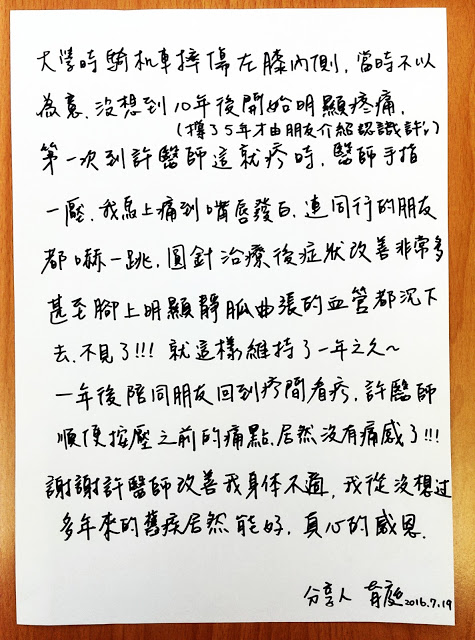 大學時騎机車摔傷左膝內側,當時不以
為意,沒想到10年後開始明顯疼痛,
(撐了5年才由朋友介紹認識許S)
第一次到許醫師這就疹時,醫師手指
一壓,我馬上痛到嘴唇發白,連同行的朋友
都嚇一跳,圓針治療後症狀改善非常多
甚至腳上明顯靜脈曲張的血管都沉下
去,不見了!!! 就這樣維持了一年之久~
一年後陪同朋友回到疹間看疹,許醫師
順便按壓之前的痛點,居然沒有痛感了!!!
謝謝許醫師改善我身体不適,我從沒想過
多年來的舊疾居然能好,真心的感恩.
分享人 2016.7.19